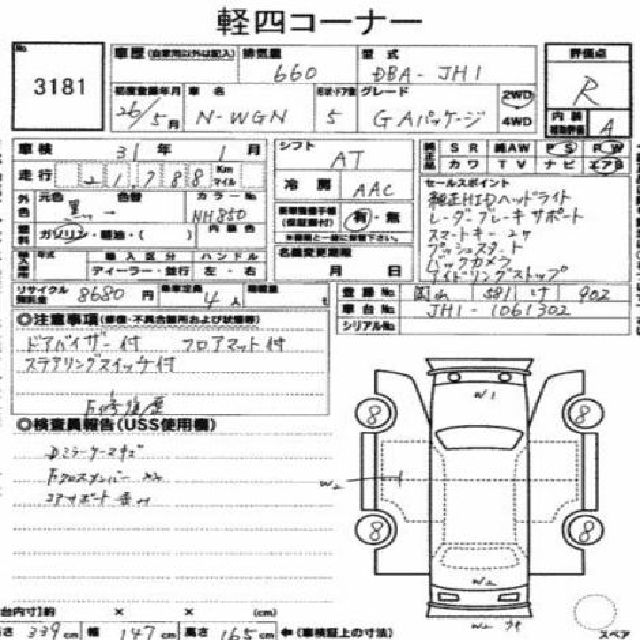 軽四コーナー
No. 3181
車歴(自家用以外は記入) 排気量 660 型式 DBA-JH1 評価点 R
初度登録年月 26/5月 車名 N-WGN 形状・ドア数 5 グレード GAパッケージ 2WD 4WD 内装 補助評価 A
車検 31年 1月 シフト AT 純正品 SR 純AW PS PW
走行 21,788 Km マイル 冷房 AAC カワ TV ナビ エアB
外色 元色 黒 色替 カラーNo. NH850
セールスポイント
純正HIDヘッドライト
レーダーブレーキサポート
スマートキー2ヶ
プッシュスタート
バックカメラ
アイドリングストップ
有・無
燃料 ガソリン・軽油・( ) 内装色
※書類と一緒にご送付下さい。
名義変更期限 月 日
輸入車 年式 輸入区分 ハンドル
ディーラー・並行 左・右
リサイクル預託金 8680円 乗車定員 4人 積載量 t
登録No. 岡山 581 け 902
車台No. JH1-1061302
シリアルNo.
◎注意事項(修復・不具合箇所および状態等)
ドアバイザー付 フロアマット付
ステアリングスイッチ付
F修復歴
◎検査員報告(USS使用欄)
Dミラーケースキズ
Fクロスメンバー
コアサポート
W1
8 8
W2
8 8
W2
W2
台内寸】約 × × (cm)
339cm 幅 147cm 高さ 165cm ←(車検証上の寸法)
スペア